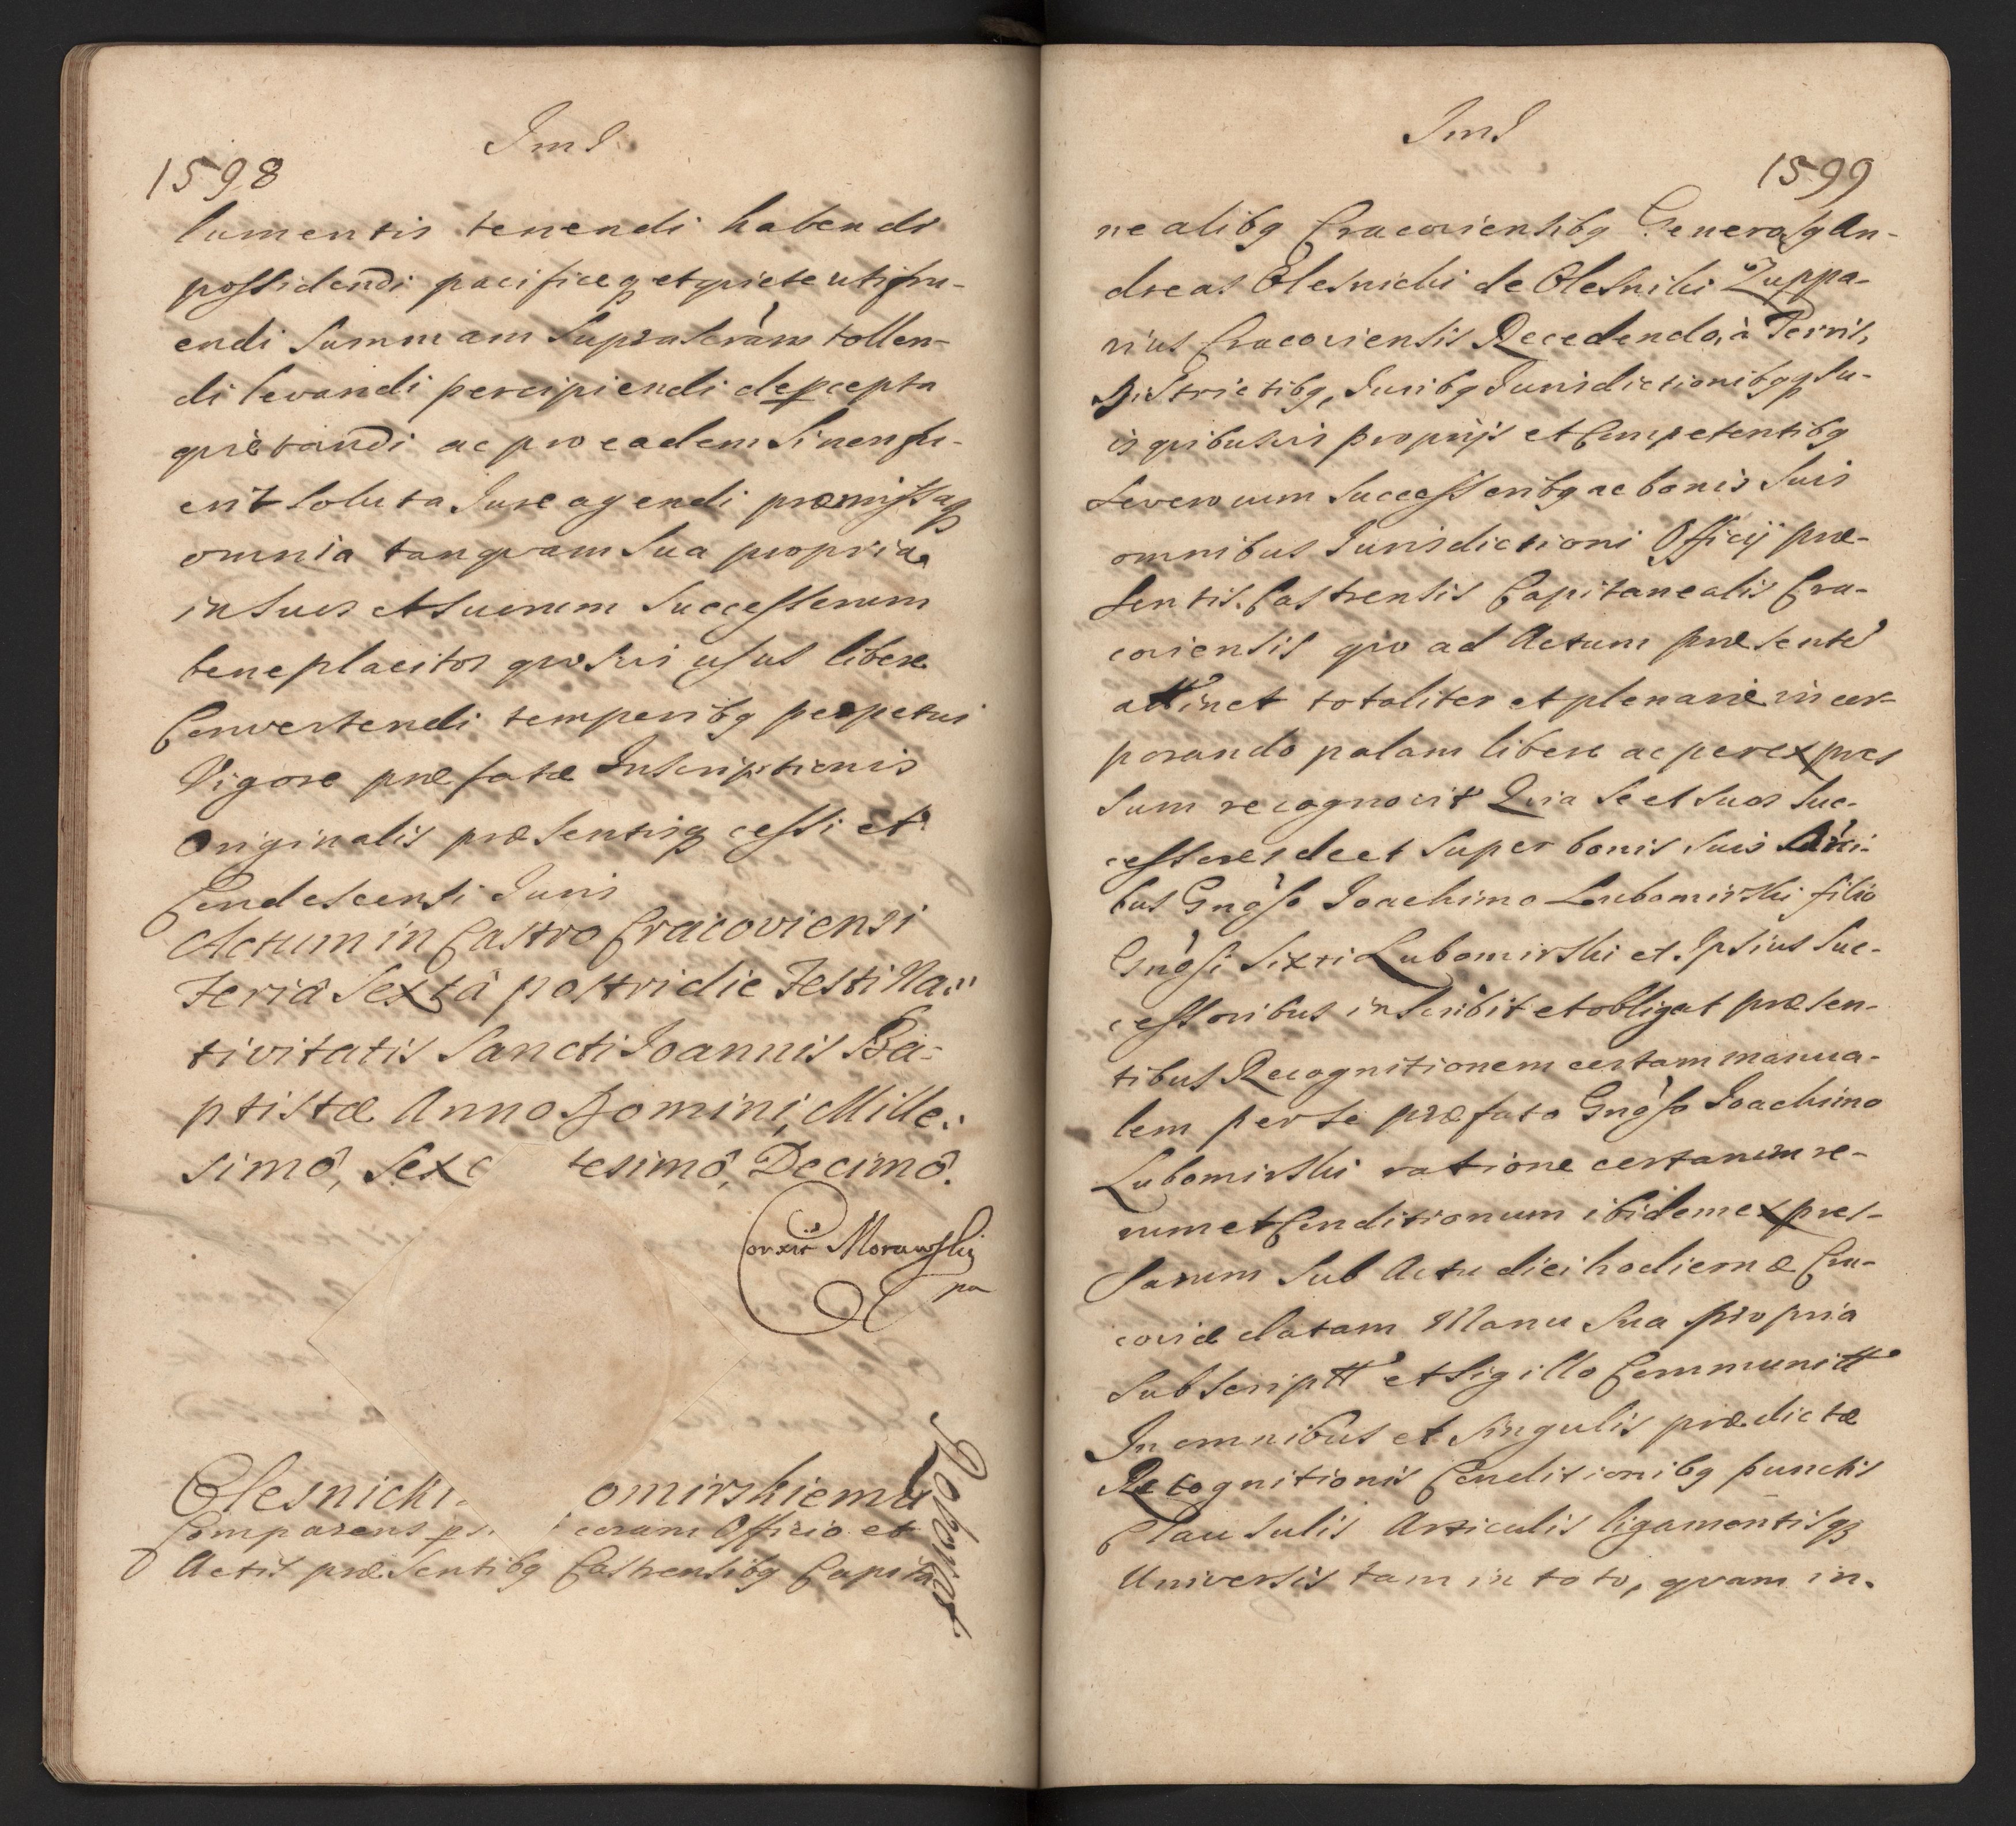 Jmd
1598
lumentis tenendi habendi
possidendi pacificeq et quiete utifru-
endi Summam Suprascram tollen-
di levandi percipiendi de pcepta
quietandi ac pro eadem Si non fu-
erit Soluta Jure agendi præmissaq
omnia tanquam Sua propria
in Suos et Suorum Successorum
beneplacitos quosvis usus libere
Convertendi temporibq perpetui
Vigore præfatæ Inscriptionis
Originalis præsentisq cessi et
Condescensi Juris
Actum in Castro Cracoviensi
Feriâ Sextâ postridie Festi Na-
tivitatis Sancti Joannis Ba-
ptistæ Anno Domini, Mille-
simô, Sexc tesimô, Decimô.
Corxit Morawski
pa
Olesnicki omirskiemu
Roboruet
Comparens coram Officio et
Actis præsentibq Castrensibq Capita
Jmd
1599
nealibq Cracoviensibq Generosq An-
dreas Olesnicki de Olesniki Zuppa-
rius Cracoviensis Recedendo, à Terris,
Districtibq, Juribq Jurisdictionibqq Su-
is quibusvis proprijs et Competentibq
Seveno cum Successoribq ac bonis Suis
omnibus Jurisdictioni Officij præ-
sentis Castrensis Capitanealis Cra-
coviensis quo ad Actum præsente
attinet totaliter et plenarie incor-
porando palam libere ac per expres
sum recognovit Quia Se et Suos Suc-
cessores de et Super bonis Suis
bus Gnoso Joachimo Lubomirski filio
Gnosi Sixti Lubomirski et Ipsius Suc-
cessoribus inscribit et obligat præsen-
tibus Recognitionem certam manua-
lem per Se præfato Gnoso Joachimo
Lubomirski ratione certarum re-
rum et Conditionum ibidem expres-
sarum Sub Actu diei hodiernæ Cra-
coviæ datam Manu Sua propria
Subscriptt et Sigillo Communitt
In omnibus et Singulis prædictæ
Recognitionis Conditionibq punctis
Clausulis Articulis ligamentisq
Universis tam in toto, quam in.